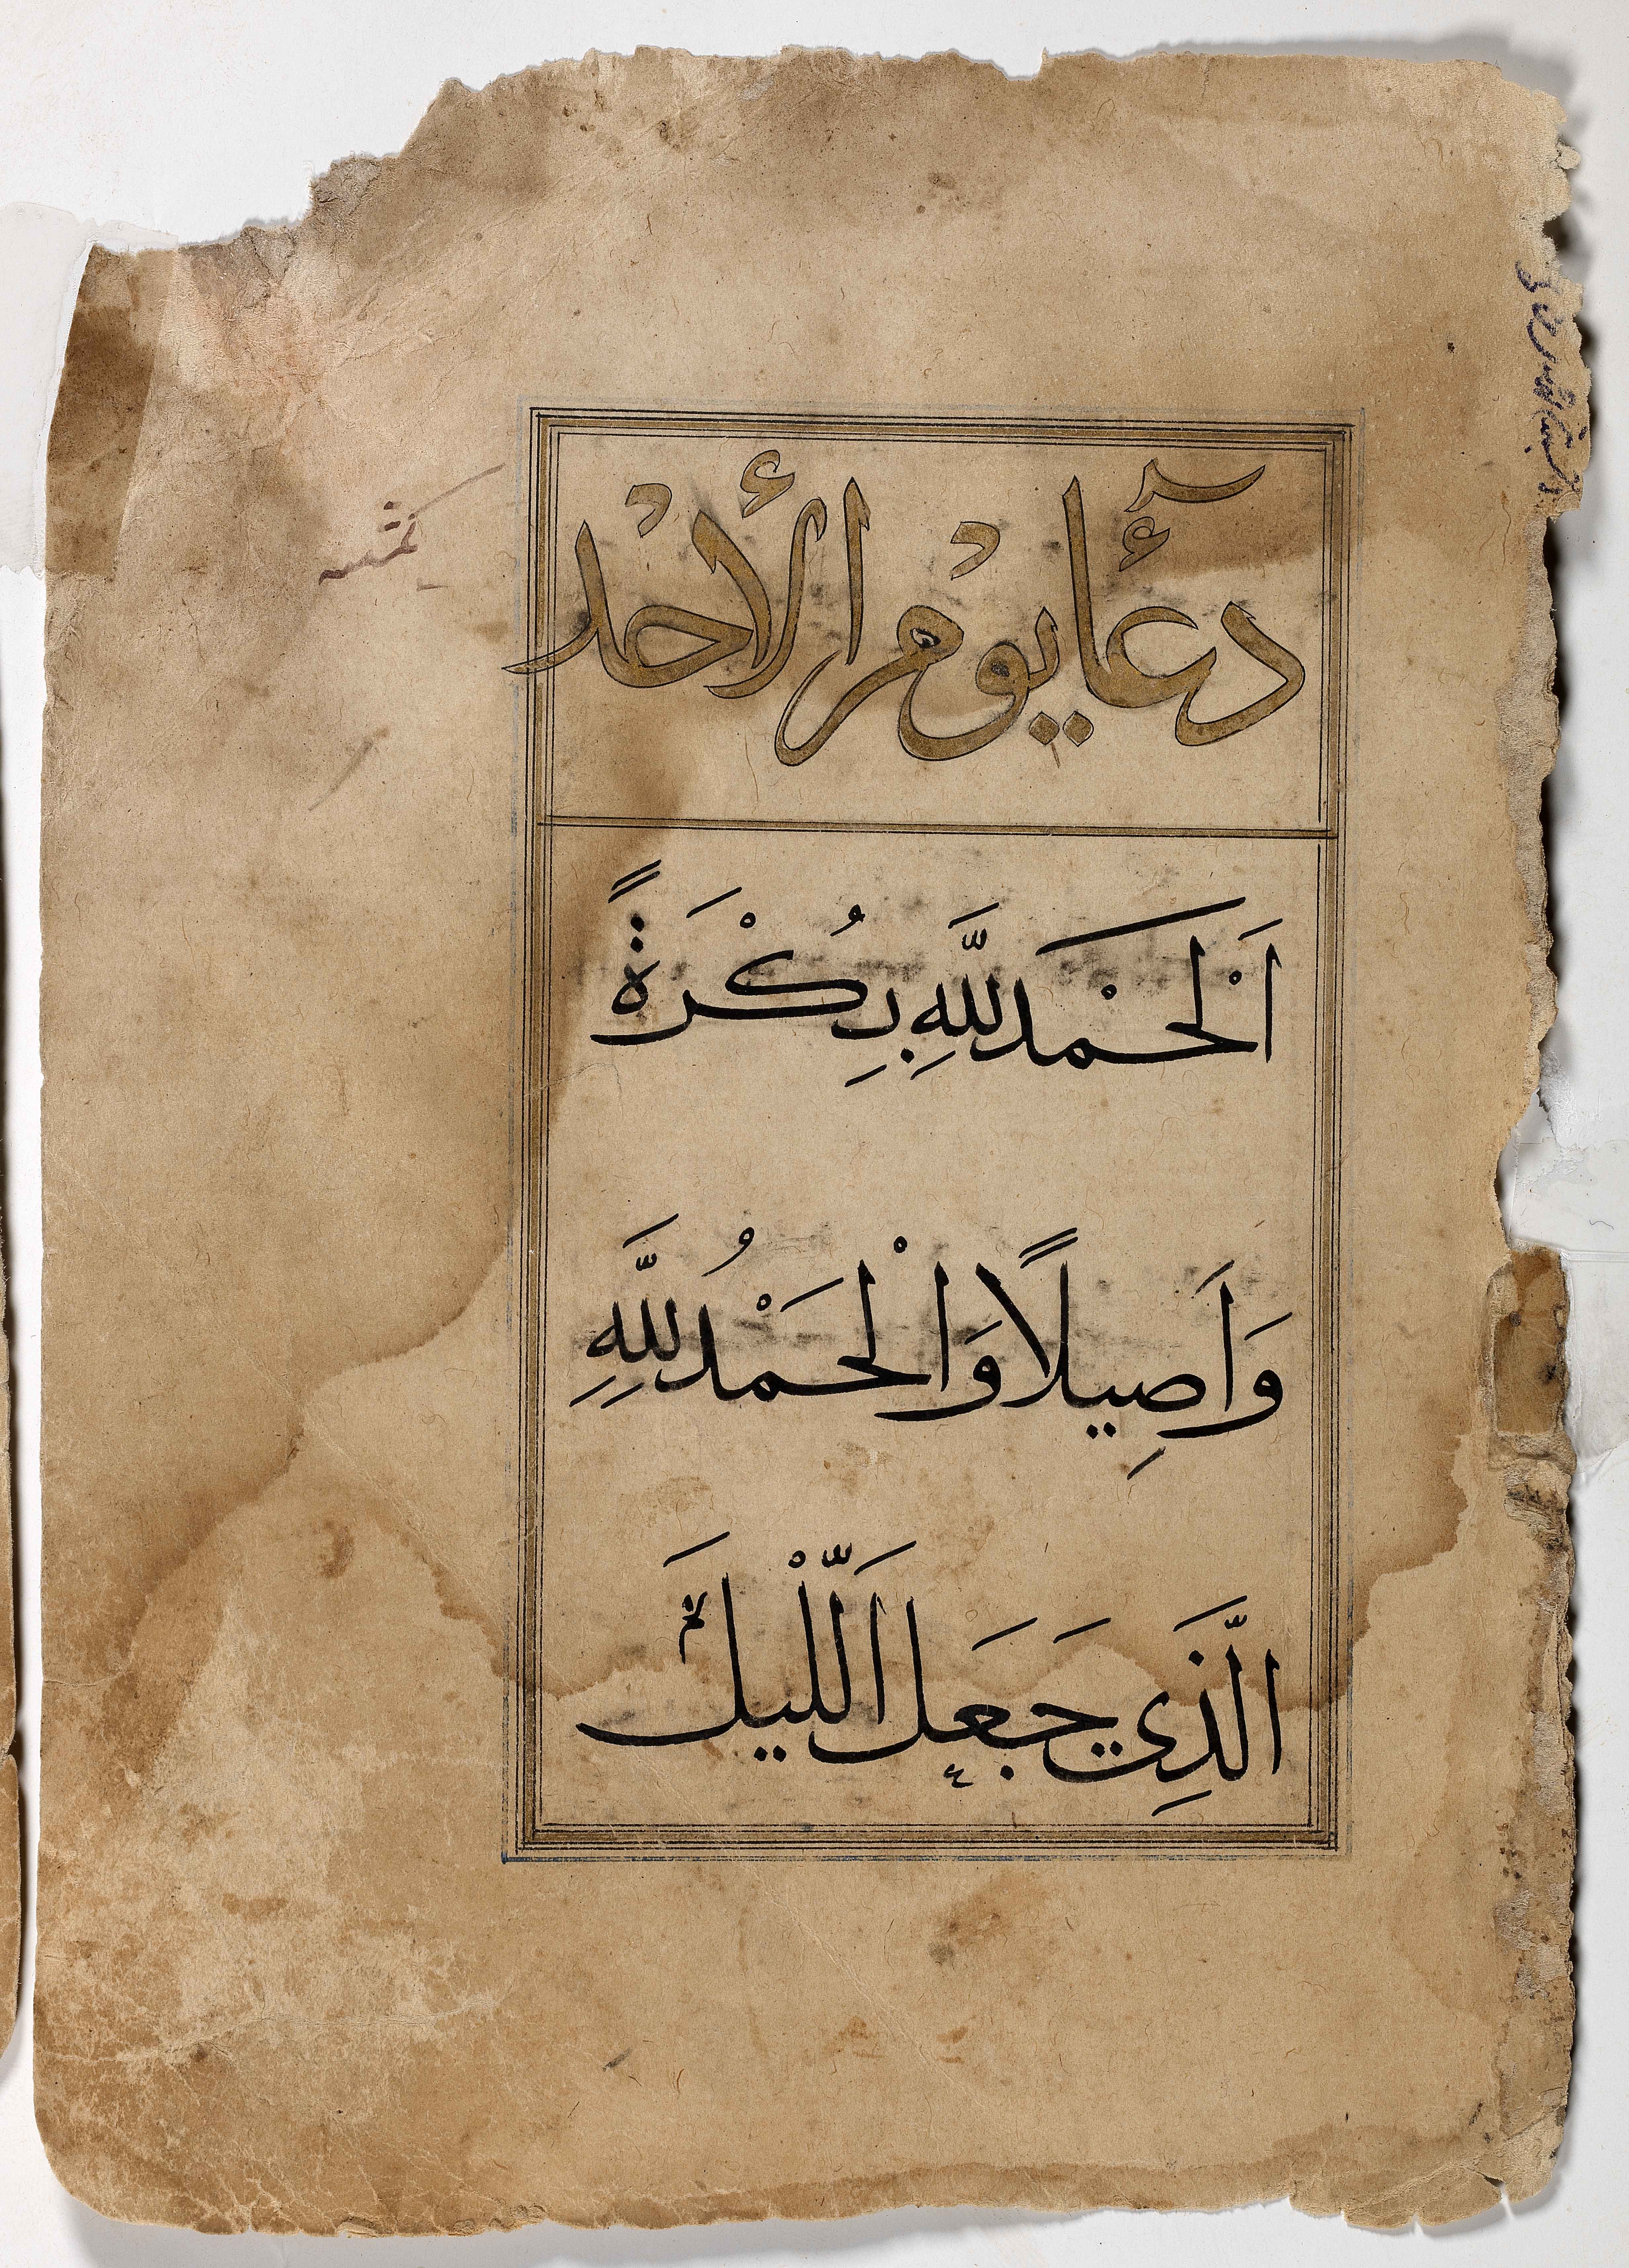 دعآء يوْم الأحْد
اَلْحَمْدَ للّٰهِ بِكُرْةً
وَاَصِيلًا وَالْحَمْدُ للّٰهِ
الَّذِي جَعَلَ اَللَّيْلَ